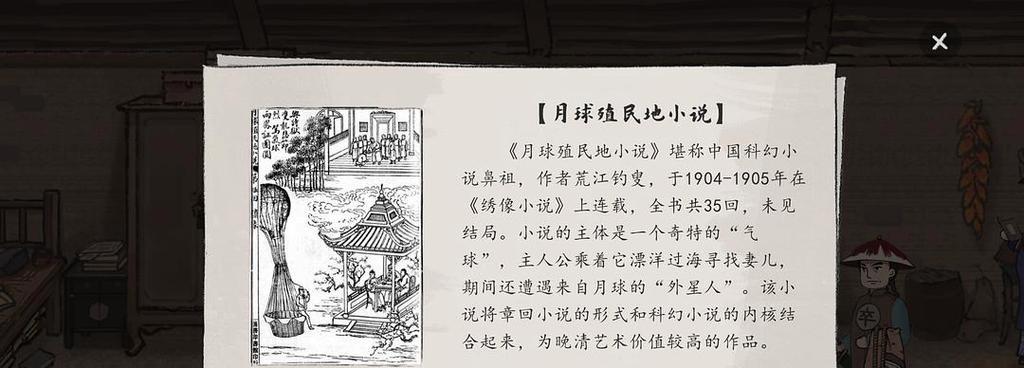 【月球殖民地小说】
《月球殖民地小说》堪称中国科幻小
说鼻祖，作者荒江钓叟，于1904-1905年在
《绣像小说》上连载，全书共35回，未见
结局。小说的主体是一个奇特的“气
球”，主人公乘着它漂洋过海寻找妻儿，
期间还遭遇来自月球的“外星人”。该小
说将章回小说的形式和科幻小说的内核结
合起来，为晚清艺术价值较高的作品。
卒